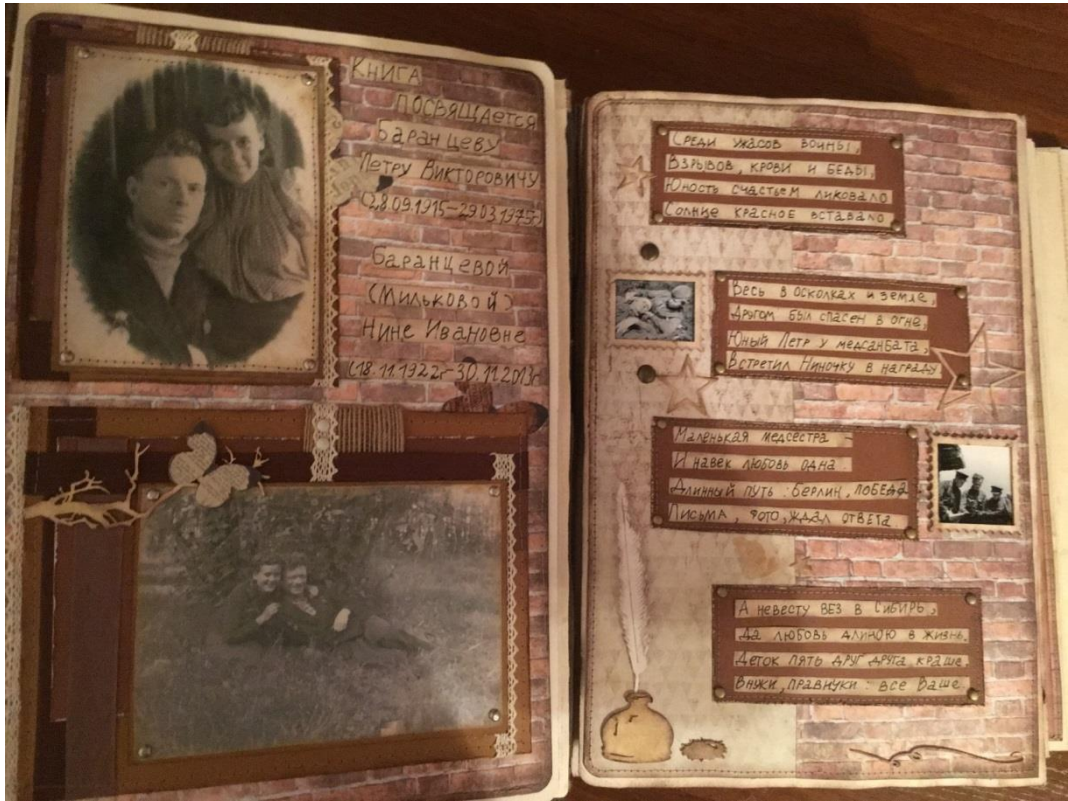 Книга
посвящается
Баранцеву
Петру Викторовичу
(28.09.1915-29.03.1975г)
Баранцевой
(Мильковой)
Нине Ивановне
(18.11.1922г-30.11.2013г
Среди ужасов войны,
Взрывов, крови и беды,
Юность счастьем ликовало
Солнце красное вставало
Весь в осколках и земле,
Другом был спасен в огне,
Юный Петр у медсанбата,
Встретил Ниночку в награду
Маленькая медсестра -
И навек любовь одна.
Длинный путь: Берлин, победа
Письма, фото, ждал ответа
А невесту вез в Сибирь,
Да любовь длиною в жизнь.
Деток пять друг друга краше.
Внуки, правнуки: все Ваше.